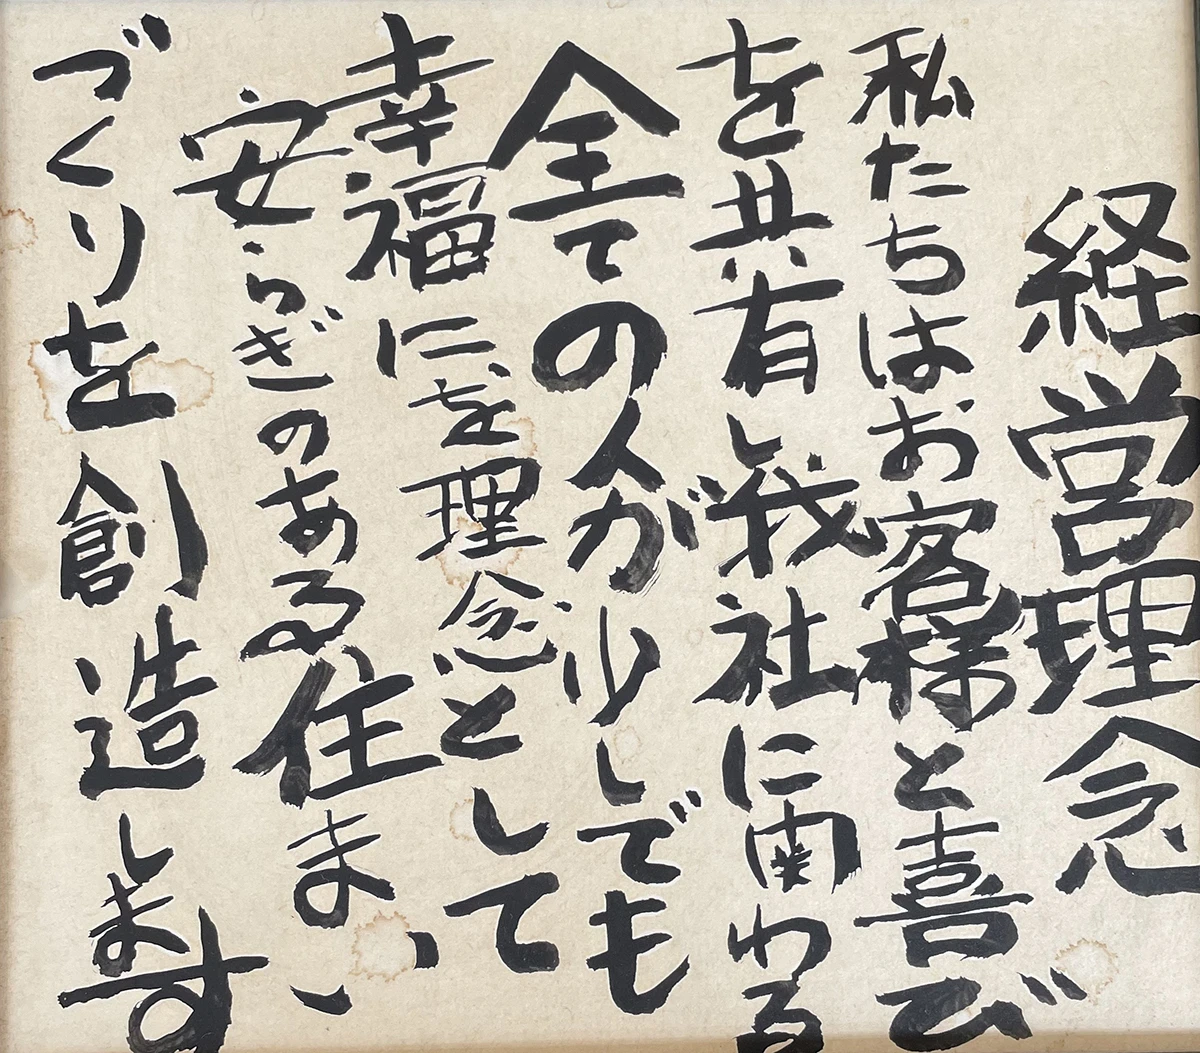 経営理念
私たちはお客様と喜び
を共有し我社に関わる
全ての人が少しでも
幸福にを理念として、
安らぎのある住まい
づくりを創造します